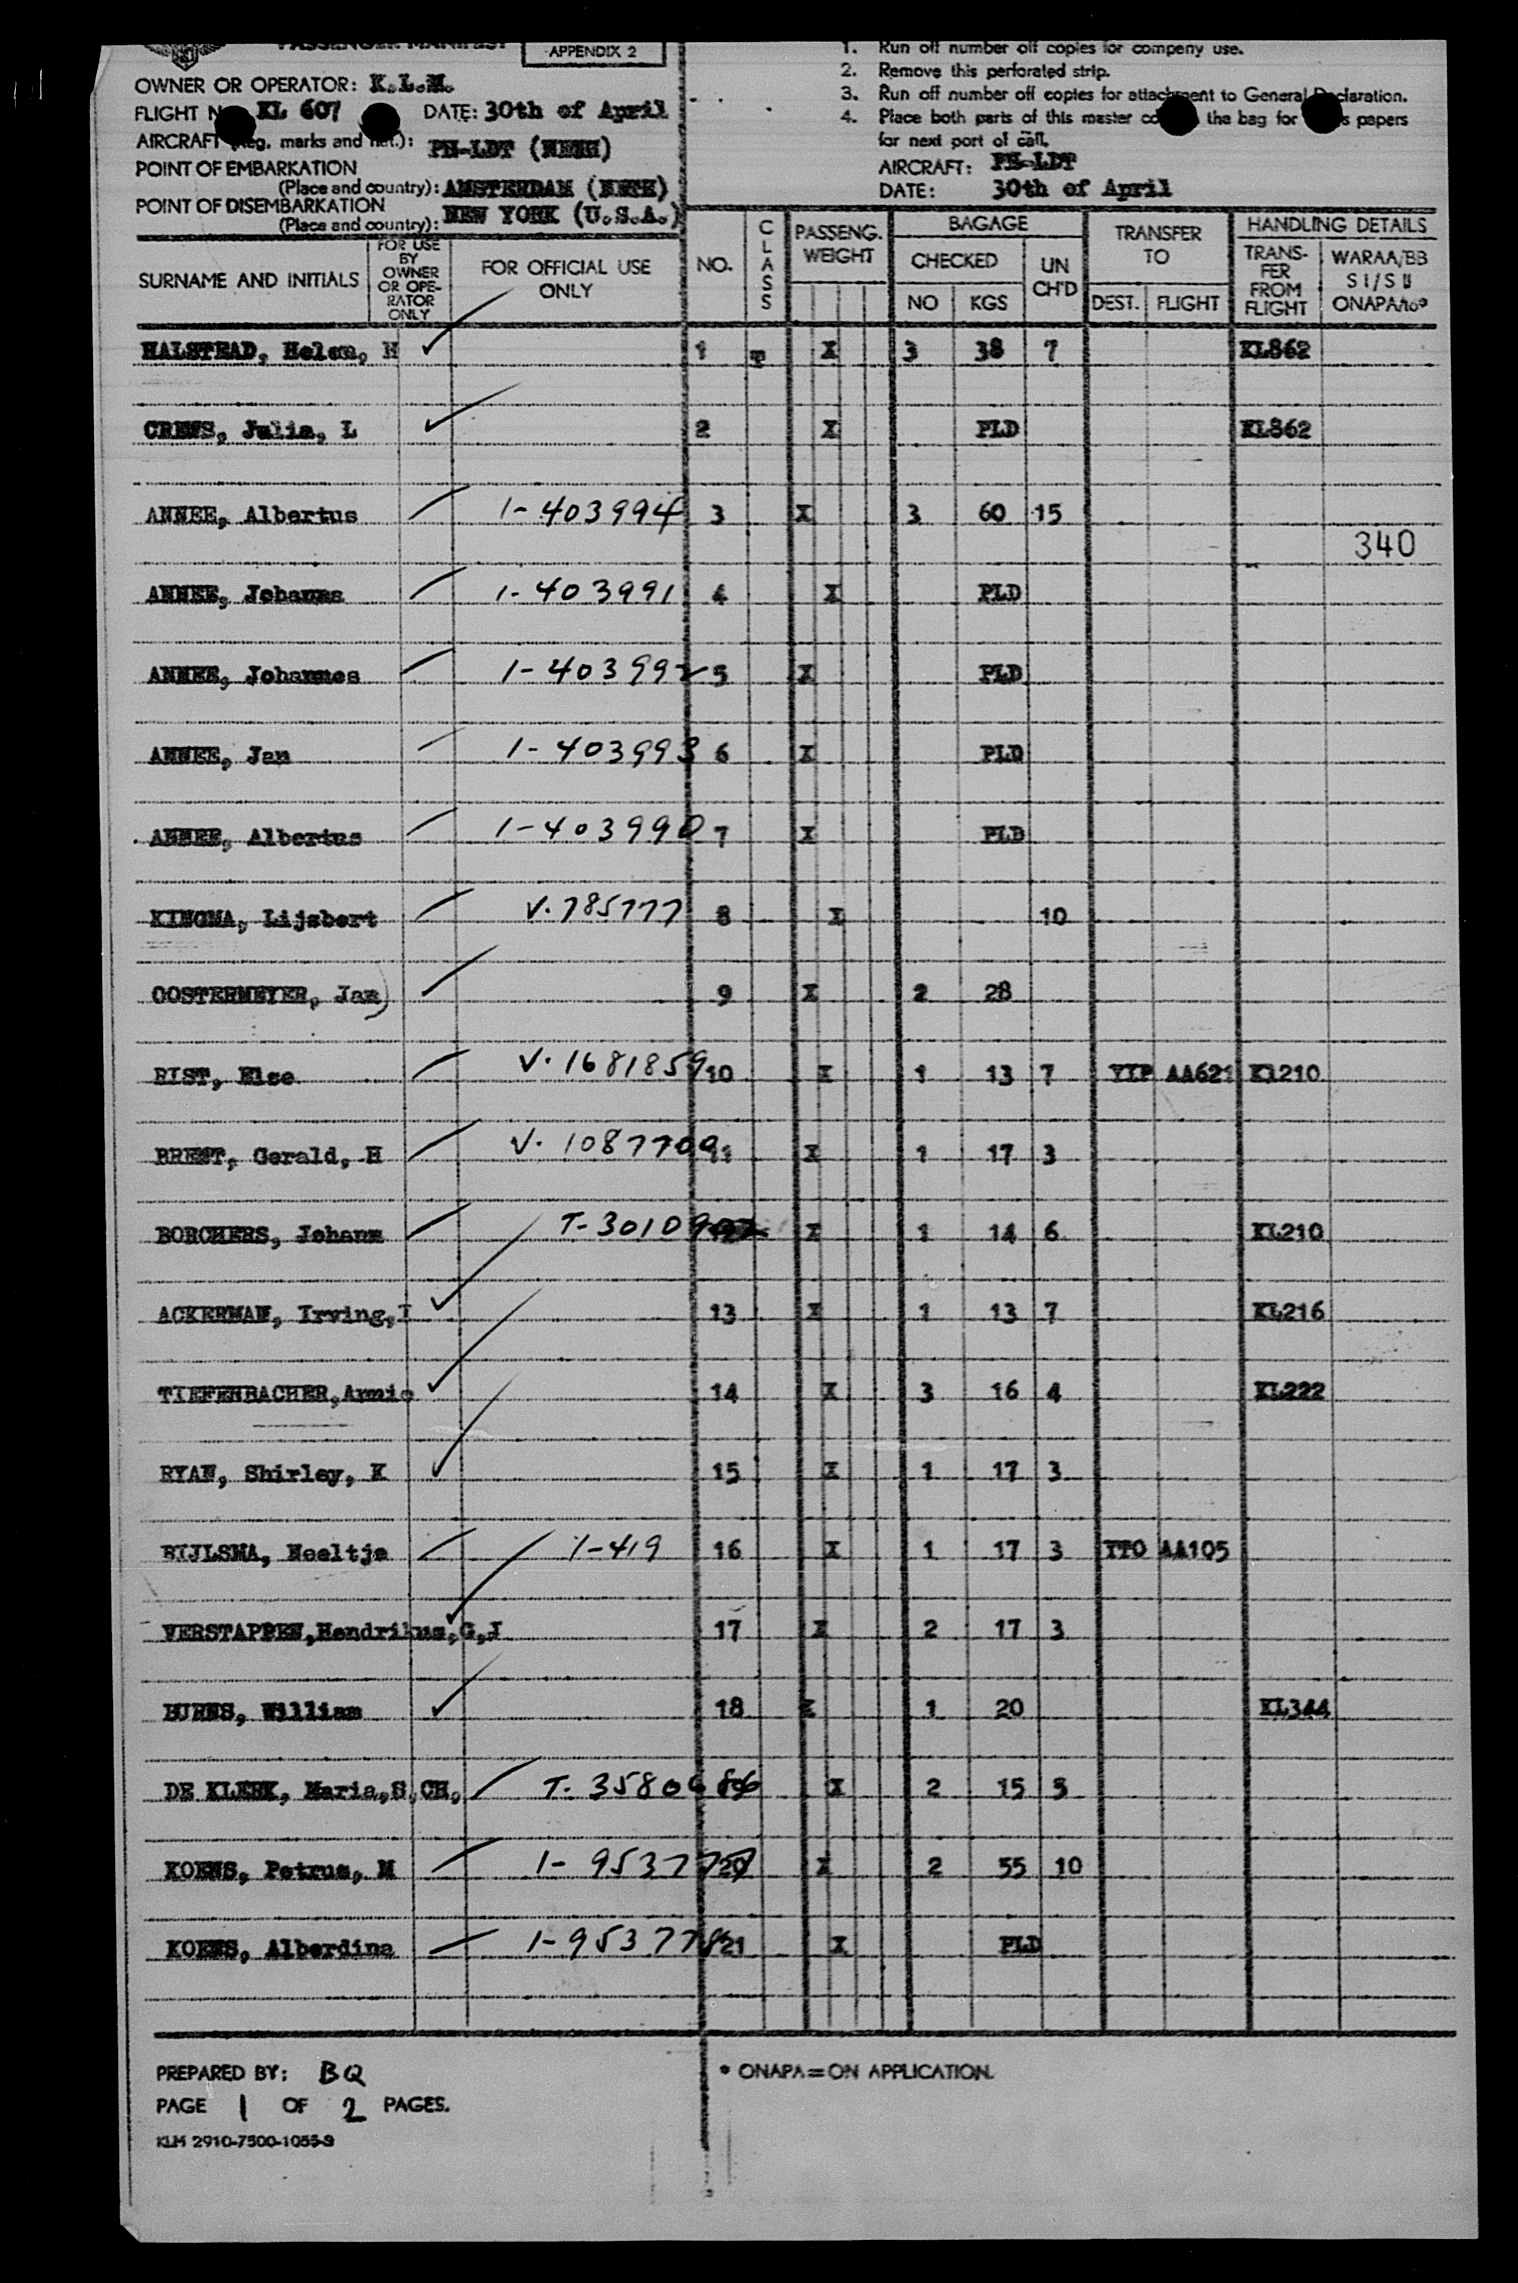 PASSENGER MANIFEST
APPENDIX 2
OWNER OR OPERATOR: K.L.M.
FLIGHT N KL 607 DATE: 30th of April
AIRCRAFT (Reg. marks and nat.): PH-LDT (NETH)
POINT OF EMBARKATION
(Place and country): AMSTERDAM (NETH)
POINT OF DISEMBARKATION
(Place and country): NEW YORK (U.S.A.)
1. Run off number off copies for company use.
2. Remove this perforated strip.
3. Run off number off copies for attachment to General Declaration.
4. Place both parts of this master the bag for papers
for next port of call.
AIRCRAFT: PH-LDT
DATE: 30th of April
SURNAME AND INITIALS FOR USE BY OWNER OR OPE-RATOR ONLY FOR OFFICIAL USE ONLY NO. CLASS PASSENG. WEIGHT BAGAGE CHECKED NO KGS UN CH'D TRANSFER TO DEST. FLIGHT HANDLING DETAILS TRANS-FER FROM FLIGHT WARAA/BB S I/S II ONAPA/to*
HALSTEAD, Helen, M 1 X 3 38 7 KL862
CREWS, Julia, L 2 X PLD KL862
ANNEE, Albertus 1-403994 3 X 3 60 15
340
ANNEE, Johanna 1-403991 4 X PLD
ANNEE, Johannes 1-403992 5 X PLD
ANNEE, Jan 1-403993 6 X PLD
ANNEE, Albertus 1-403990 7 X PLD
KINGMA, Lijsbert V-785777 8 X 10
OOSTERMEYER, Jan 9 X 2 28
RIST, Else V-1681859 10 X 1 13 7 YIP AA621 KL210
BREST, Gerald, H V-1087709 11 X 1 17 3
BORCHERS, Johann T-30109 X 1 14 6 KL210
ACKERMAN, Irving, I 13 X 1 13 7 KL216
TIEFENBACHER, Annie 14 X 3 16 4 KL222
RYAN, Shirley, K 15 X 1 17 3
BIJLSMA, Neeltje 1-419 16 X 1 17 3 YTO AA105
VERSTAPPEN, Hendrikus, G, J 17 X 2 17 3
BURNS, William 18 X 1 20 KL344
DE KLERK, Maria, S, CH, T-35806 X 2 15 5
KOENS, Petrus, M 1-953777 20 X 2 55 10
KOENS, Alberdina 1-953778 21 X PLD
PREPARED BY: BQ
PAGE 1 OF 2 PAGES.
KLM 2910-7500-1055-S
* ONAPA=ON APPLICATION.